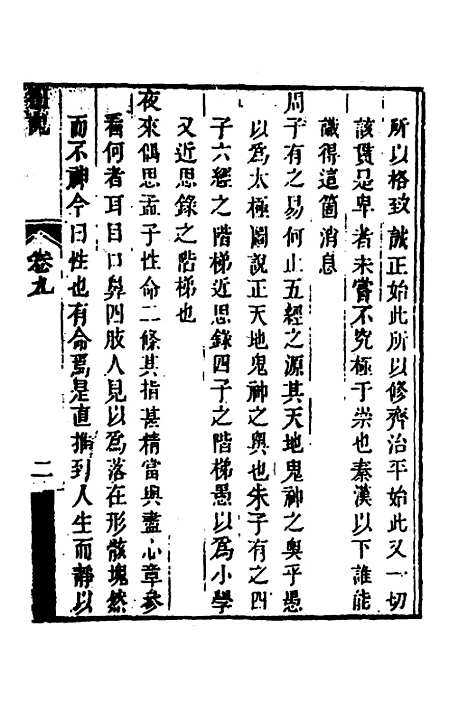 所以格致誠正始此所以修齊治平始此又一切
該貫是卑者未嘗不究極于崇也秦漢以下誰能
識得這箇消息
周子有之易何止五經之源其天地鬼神之奧乎愚
以為太極圖說正天地鬼神之奧也朱子有之四
子六經之階梯近思錄四子之階梯愚以為小學
又近思錄之階梯也
夜來偶思孟子性命二條其指甚精當與盡心章參
看何者耳目口鼻四肢人見以為落在形骸塊然
而不神今曰性也有命焉是直推到人生而靜以
卷九
二